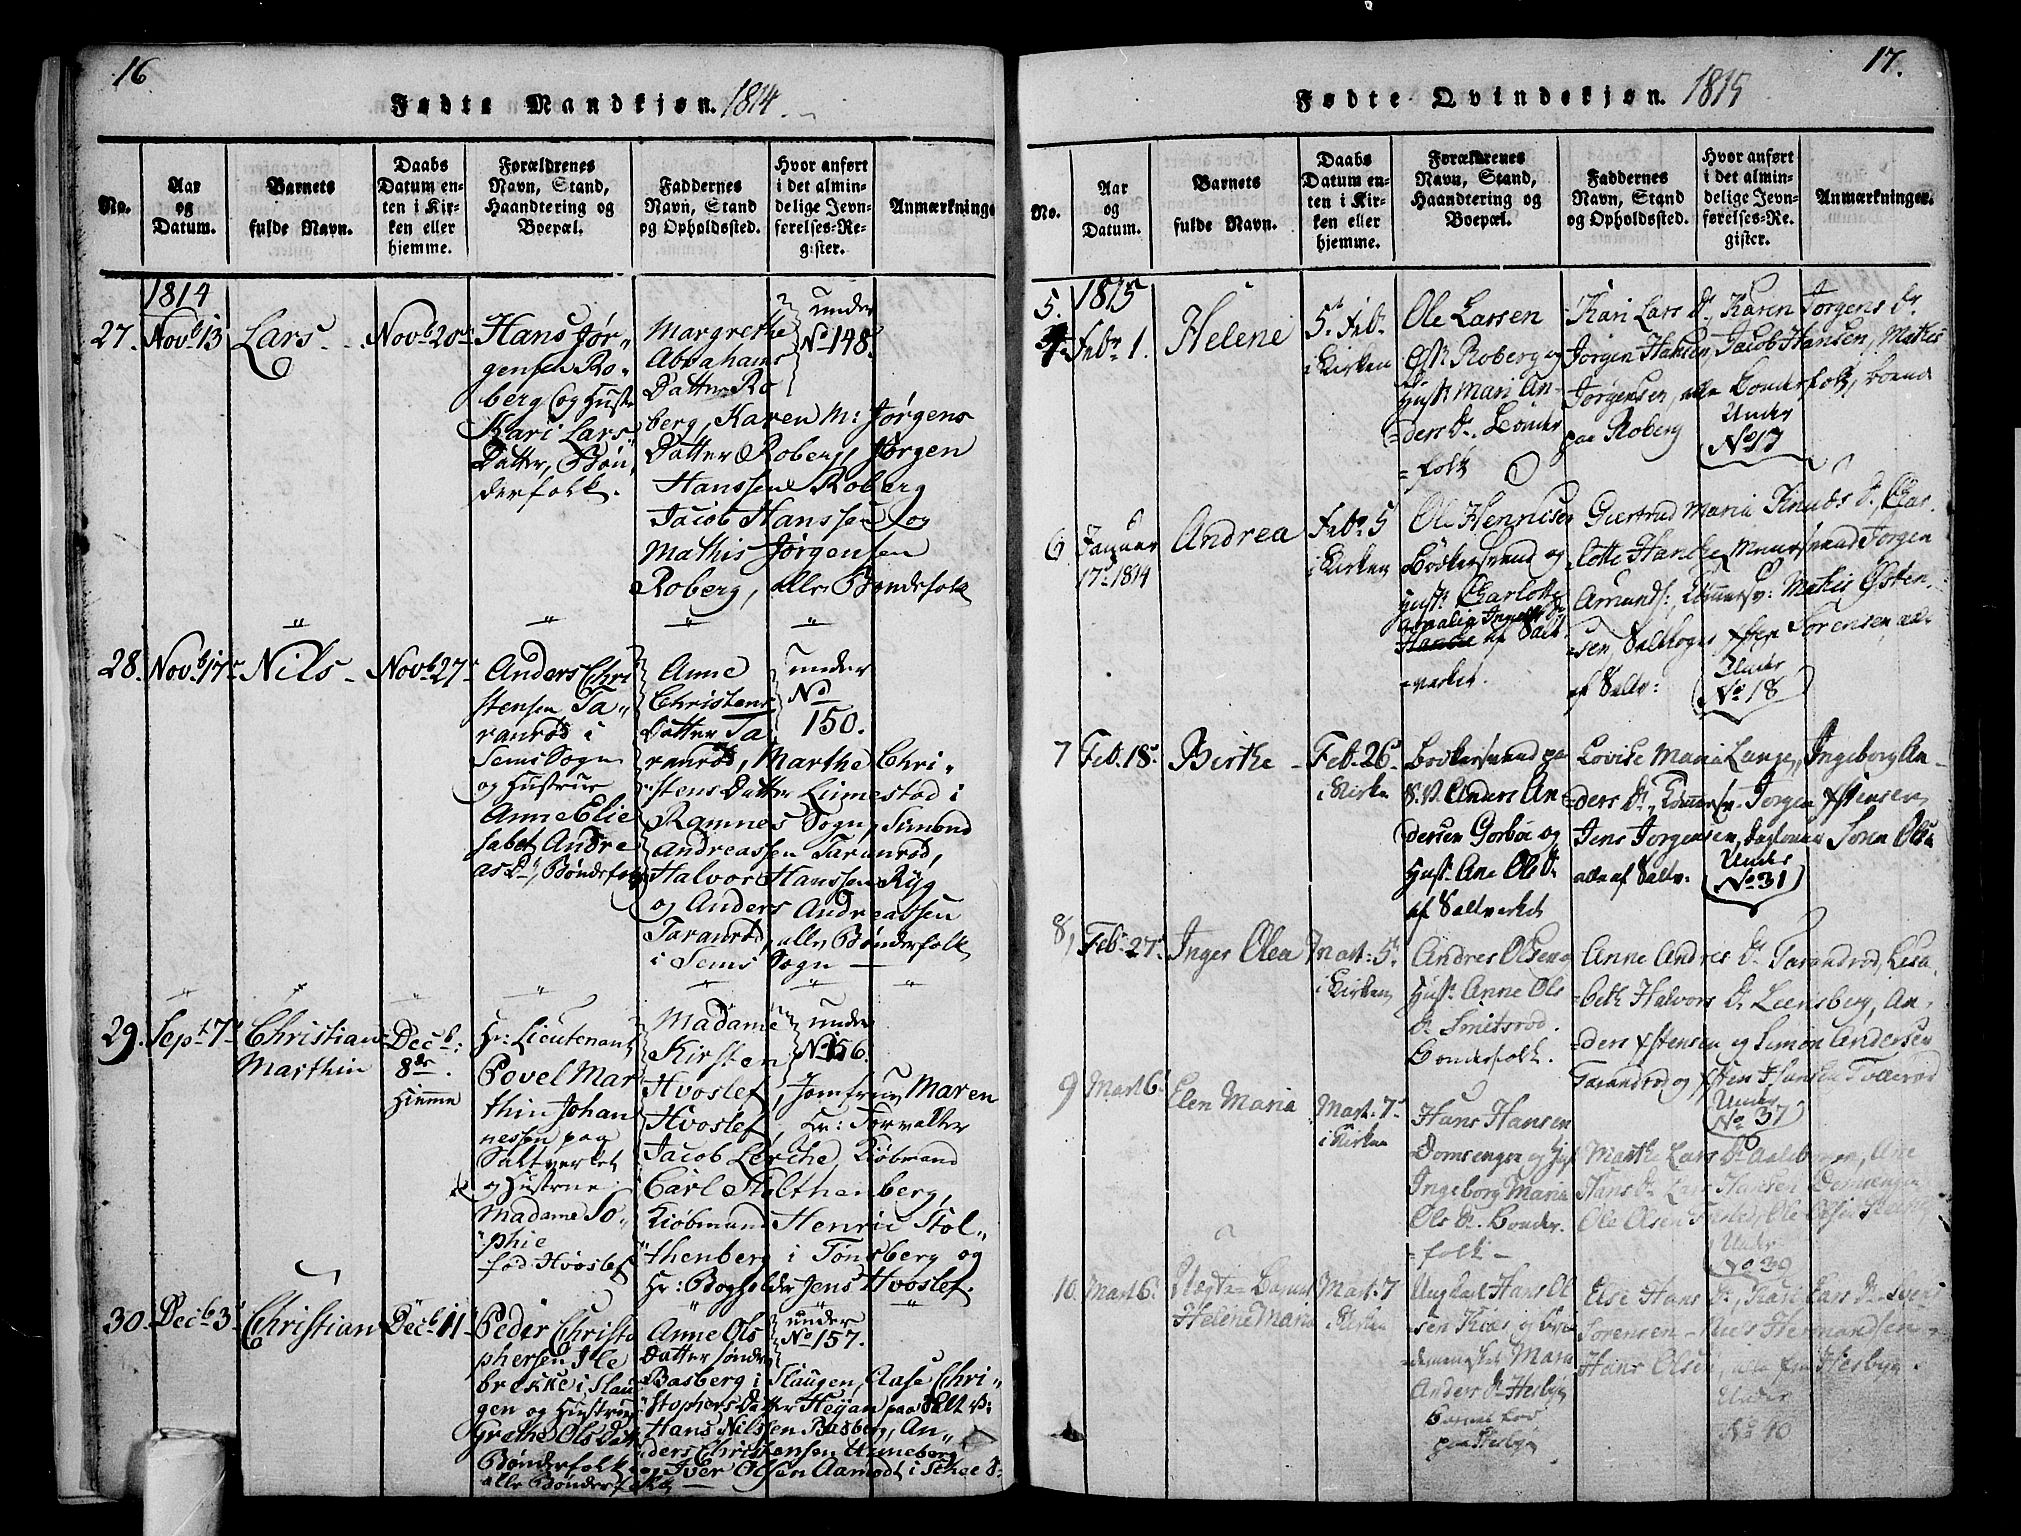 16
Fødte Mandkjøn. 1814.
No.
Aar
og
Datum.
Barnets
fulde Navn.
Daabs
Datum en-
ten i Kir-
ken eller
hjemme.
Forældrenes
Navn, Stand,
Haandtering og
Boepæl.
Faddernes
Navn, Stand
og Opholdssted.
Hvor anført
i det almin-
delige Jevn-
førelses-Re-
gister.
Anmærkninge
1814
27. Novb 13
Lars
Novb 20
Hans Jør-
gensen Ro-
berg og Hustr
Kari Lars
Datter, Bøn-
derfolk.
Margrethe
Abrahams
Datter Ro
berg, Karen M: Jørgens
Datter Roberg, Jørgen
Hanssen Roberg
Jacob Hanssen og
Mathis Jørgensen
Roberg, alle Bøndefolk
under
No 148.
28. Novb 17
Nils
Novb 27
Anders Chri
stensen Ta-
ranrød i
Sems Sogn
og Hustrue
Anne Elie
sabet Andre
as Dr, Bøndefolk
Anne
Christens
Datter Ta
ranrød, Marthe Chri-
stens Datter Limestad i
Ramnes Sogn, Simond
Andreassen Taranrød,
Halvor Hanssen Ryg
og Anders Andreassen
Taranrød, alle Bønderfolk
i Sems Sogn
under
No
150.
29. Sept 7
Christian
Marthin
Decb:
8de.
Hiemme
Hr: Lieutenant
Povel Mar
thin Johan
nessen paa
Saltverket
og Hustrue
Madame So-
phie
fød Hvoslef
Madame
Kirsten
Hvoslef, Jomfrue Maren
Hvoslef, Hr: Forvalter
Jacob Lerche Kiøbmand
Carl Stolthenberg,
Kiøbmand Henric Stol-
thenberg i Tønsberg og
Hr: Bogholder Jens Hvoslef.
under
No 156.
30. Decb 3
Christian
Decb 11
Peder Christo
phersen Ile
brekke i Slau
gen og Hustrue
Grethe Ols Dat
Bønderfolk
Anne Ols
Datter Sønder
Basberg i Slaugen, Aase Chri-
stophers Datter Heyan paa Salt v:
Hans Nilssen Basberg, An-
ders Christensen Unneberg
og Iver Olsen Aamodt i Schee S:
alle Bønderfolk
under
No 157.
17.
Fødte Qvindekjøn. 1815
No.
Aar
og
Datum.
Barnets
fulde Navn.
Daabs
Datum en-
ten i Kir-
ken eller
hjemme.
Forældrenes
Navn, Stand,
Haandtering og
Boepæl.
Faddernes
Navn, Stand
og Opholdssted.
Hvor anført
i det almin-
delige Jevn-
førelses-Re-
gister.
Anmærkninger.
5. 1815
Febr 1.
Helene
5 Feb.
i Kirken
Ole Larsen
Roberg og
Hust: Mari An-
ders Dr. Bønder
folk
Kari Lars Dr, Karen Jørgens Dr
Jørgen Hansen, Jacob Hansen, Mathis
Jørgensen, alle Bønderfolk, boende
paa Roberg
Under
No 17
6 Januar
17 1814
Andrea
Febr 5
i Kirken
Ole Henricsen
og
Hust: Charlotte
Amalia
af Salt-
verket.
Giertrud Maria Knuds Dr, Char-
lotte Hancke, Jørgen
Amunds:
af Saltv:
Under
No 18
7 Feb. 18
Birthe
Feb. 26
i Kirken
paa
S.V. Anders An
dersen Gorboe og
Hust: Ane Ols Dr
af Saltverket
Lovise Maria Lange, Ingeborg An-
ders Dr, Jørgen
Jens Jørgensen, Søren Olse
alle af Saltv:
Under
No 31
8, Feb. 27
Inger Olea
Mart: 5
i Kirken
Andres Olsen og
Hust: Anne Ols
Dr Smitsrød.
Bønderfolk.
Anne Andres Dr Tarandrød, Lisa-
beth Halvors Dr Leensberg, An-
ders og Simon Andersen
Tarandrød og Hansen
Under
No 37
9 Mart 6
Elen Maria
Mart: 7
i Kirken
Hans Hansen
Domsengen og Hust
Ingeborg Maria
Ols Dr. Bønder-
folk
Marthe Lars Dr, Ane
Hans Dr Lars Hansen
Ole Olsen
Under
No 39
10. Mart 6
Uægte Barn
Helene Maria
Mart: 7
i Kirken
Ungkarl Hans Ol
sen og
Maria
Anders Dr Hesbyn
Barnet fød
paa Hesbyn
Else Hans Dr, Kari Lars Dr
Sørensen Niels Hermandsen
Hans Olsen, alle fra Hesbyn.
Under
No 40